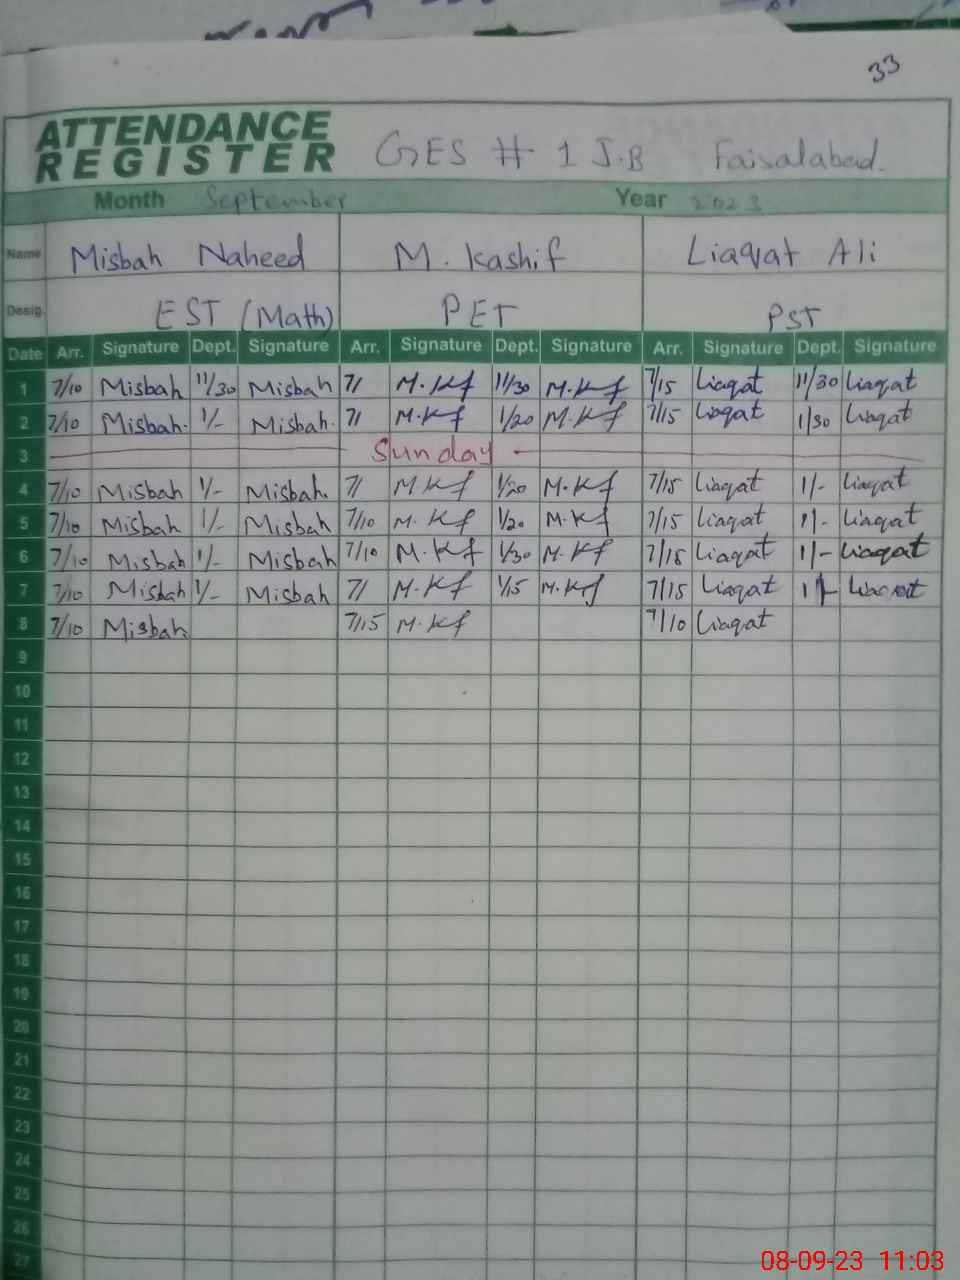 33
ATTENDANCE
REGISTER GES # 1 J.B Faisalabad.
Month September Year 2023
Name Misbah Naheed M. Kashif Liaqat Ali
Desig. EST (Math) PET PST
Date Arr. Signature Dept. Signature Arr. Signature Dept. Signature Arr. Signature Dept. Signature
1 7/10 Misbah 11/30 Misbah 7/ M.Kf 11/30 M.Kf 7/15 Liaqat 11/30 Liaqat
2 7/10 Misbah. 1/- Misbah. 7/ M.Kf 1/20 M.Kf 7/15 Liaqat 1/30 Liaqat
3 Sunday
4 7/10 Misbah 1/- Misbah. 7/ M.Kf 1/20 M.Kf 7/15 Liaqat 1/- Liaqat
5 7/10 Misbah 1/- Misbah 7/10 M.Kf 1/20 M.Kf 7/15 Liaqat 1/- Liaqat
6 7/10 Misbah 1/- Misbah 7/10 M.Kf 1/30 M.Kf 7/15 Liaqat 1/- Liaqat
7 7/10 Misbah 1/- Misbah 7/ M.Kf 1/15 M.Kf 7/15 Liaqat 1/- Liaqat
8 7/10 Misbah 7/15 M.Kf 7/10 Liaqat
9
10
11
12
13
14
15
16
17
18
19
20
21
22
23
24
25
26
27
08-09-23 11:03